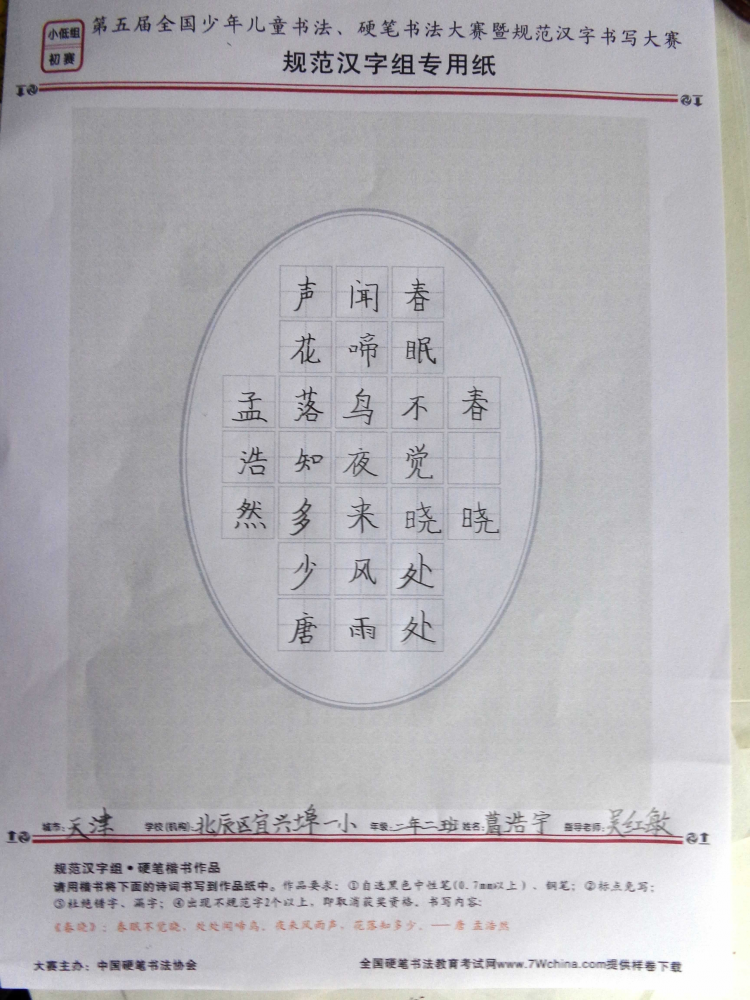 小低组
初赛
第五届全国少年儿童书法、硬笔书法大赛暨规范汉字书写大赛
规范汉字组专用纸
春晓
春眠不觉晓处处
闻啼鸟夜来风雨
声花落知多少唐
孟浩然
城市:天津 学校(机构):北辰区宜兴埠一小 年级:二年二班 姓名:浩宇 指导老师:吴红敏
规范汉字组•硬笔楷书作品
请用楷书将下面的诗词书写到作品纸中。作品要求：①自选黑色中性笔(0.7mm以上)、钢笔；②标点免写；
③杜绝错字、漏字；④出现不规范字2个以上，即取消获奖资格。书写内容：
《春晓》：春眠不觉晓，处处闻啼鸟。夜来风雨声，花落知多少。——唐 孟浩然
大赛主办：中国硬笔书法协会
全国硬笔书法教育考试网www.7Wchina.com提供样卷下载